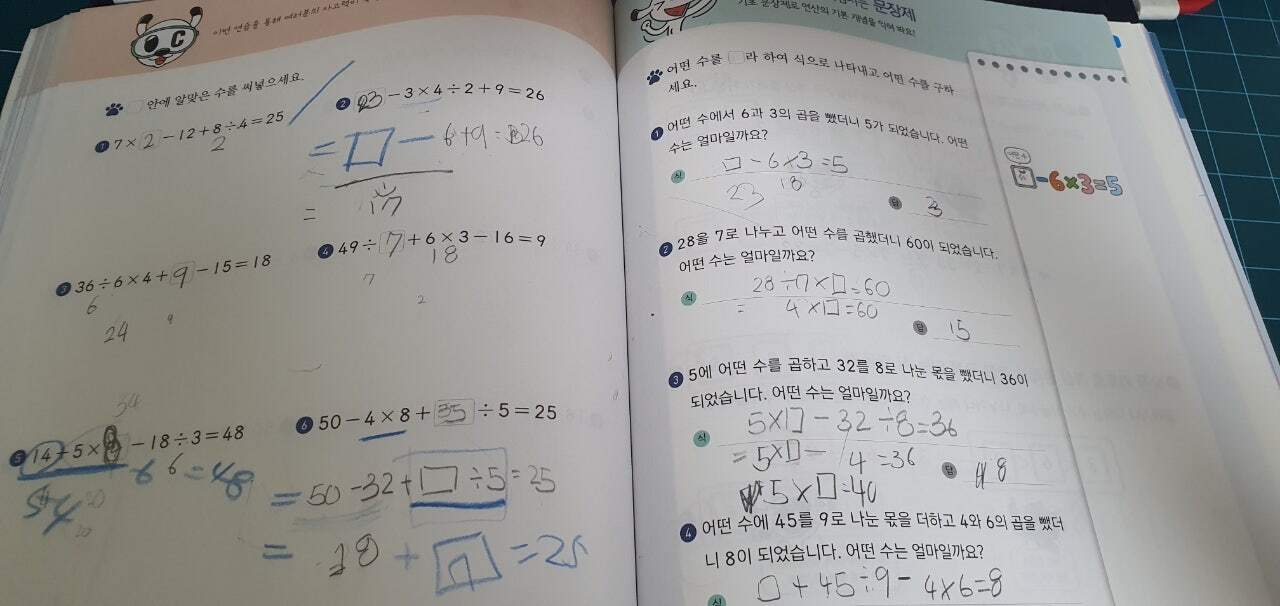 이번 연습을 통해 여러분의 사고력이
안에 알맞은 수를 써넣으세요.
1 7×2-12+8÷4=25
2
2 23-3×4÷2+9=26
=□-6+9=26
=
17
3 36÷6×4+9-15=18
6
24
9
4 49÷7+6×3-16=9
18
7
2
34
5 14+5×8-18÷3=48
6 6=48
54
6 50-4×8+35÷5=25
=50-32+□÷5=25
=18+7=25
문장제
기초 문장제로 연산의 기본 개념을 익혀 봐요!
어떤 수를 □라 하여 식으로 나타내고 어떤 수를 구하
세요.
1 어떤 수에서 6과 3의 곱을 뺐더니 5가 되었습니다. 어떤
수는 얼마일까요?
식 □-6×3=5
23 18
답 3
어떤 수
□-6×3=5
2 28을 7로 나누고 어떤 수를 곱했더니 60이 되었습니다.
어떤 수는 얼마일까요?
식 28÷7×□=60
= 4×□=60
답 15
3 5에 어떤 수를 곱하고 32를 8로 나눈 몫을 뺐더니 36이
되었습니다. 어떤 수는 얼마일까요?
식 5×□-32÷8=36
=5×□-4=36
답 8
5×□=40
4 어떤 수에 45를 9로 나눈 몫을 더하고 4와 6의 곱을 뺐더
니 8이 되었습니다. 어떤 수는 얼마일까요?
식 □+45÷9-4×6=8